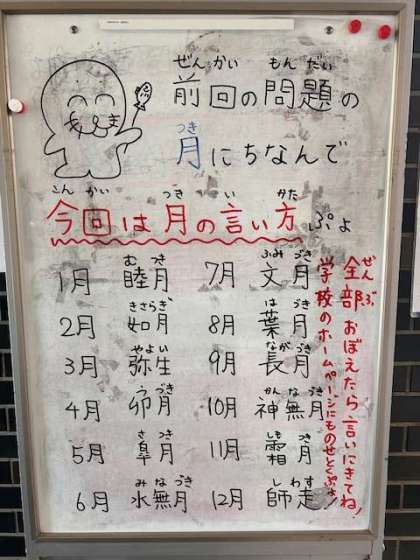 ぜん かい もん だい
前回の問題の
つき
月にちなんで
こん かい つき い かた
今回は月の言い方ぷょ
む つき
1月 睦月
きさらぎ
2月 如月
や よい
3月 弥生
づき
4月 卯月
さ つき
5月 皐月
み な づき
6月 水無月
ふみ づき
7月 文月
は づき
8月 葉月
なが つき
9月 長月
かん な づき
10月 神無月
しも つき
11月 霜月
し わす
12月 師走
ぜん ぶ
全部おぼえたら言いにきてね!
学校のホームページにものせとくぷょ!